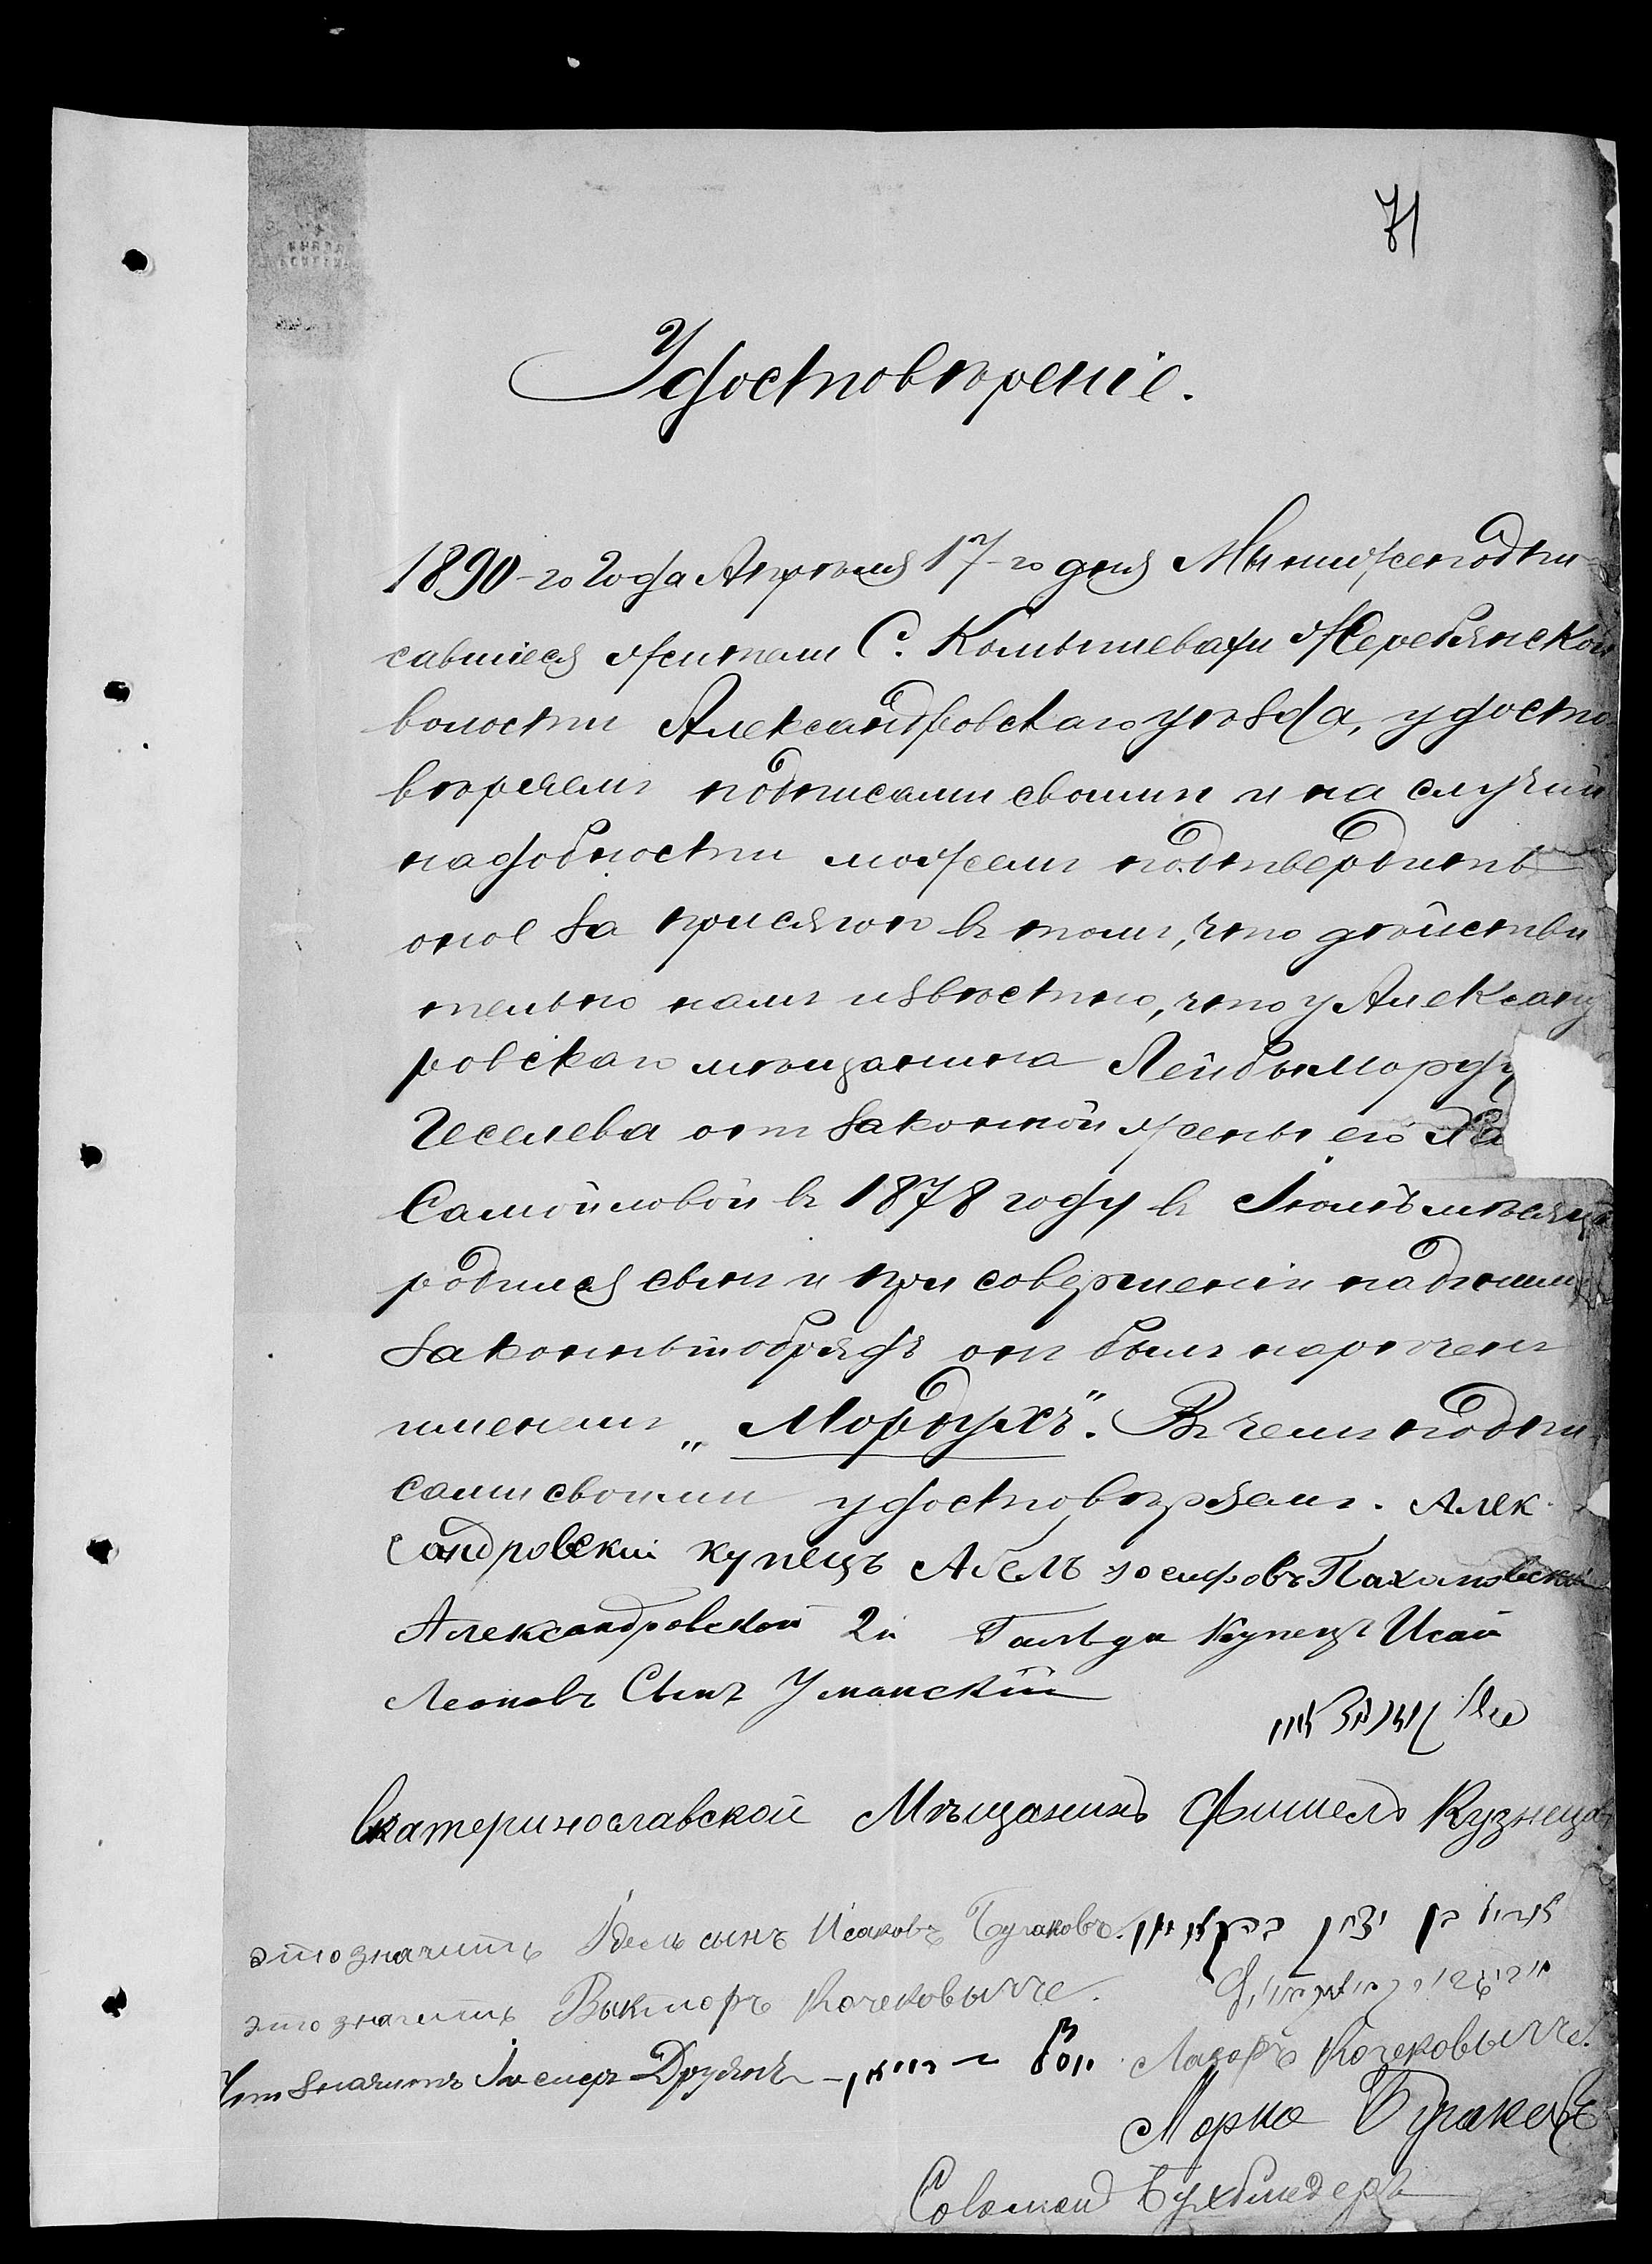 71
Удостовѣреніе.
1890-го года Апрѣля 17-го дня Мы нижеподпи-
савшіеся жители С. Камышевахи Жеребянской
волости Александровскаго уѣзда, удосто
вѣряемъ подписами своими и на случай
надобности можемъ подтвердить
оное за присягою въ томъ, что дѣйстви
тельно намъ извѣстно, что у Александ
ровскаго мѣщанина Лейбы Морду
Геселева отъ законной жены его
Самойловой въ 1878 году въ Іюлѣ мѣсяцѣ
родился сынъ и при совершеніи надъ ним
законный обрядъ онъ былъ нареченъ
именемъ „Мордухъ". Въ чемъ подпи
сами своими удостовѣряемъ. Алек
сандровскій купецъ Абель Іосифовъ Пахановскій
Александровской 2й Гильди Купецъ Исай
Леоновъ Сынъ Уманскій
Екатеринославской Мѣщанинъ Фишель Кузнецовъ
это значить Идель сынъ Исаковъ Бугаковъ. בן יצחק
это значить Выкторъ Кочековычче.
Что значитъ Іосифъ Друянъ - יוסף דרויאן Лазоръ Кочековычче.
Марко Бугаковъ
Соломон Бухбиндеръ